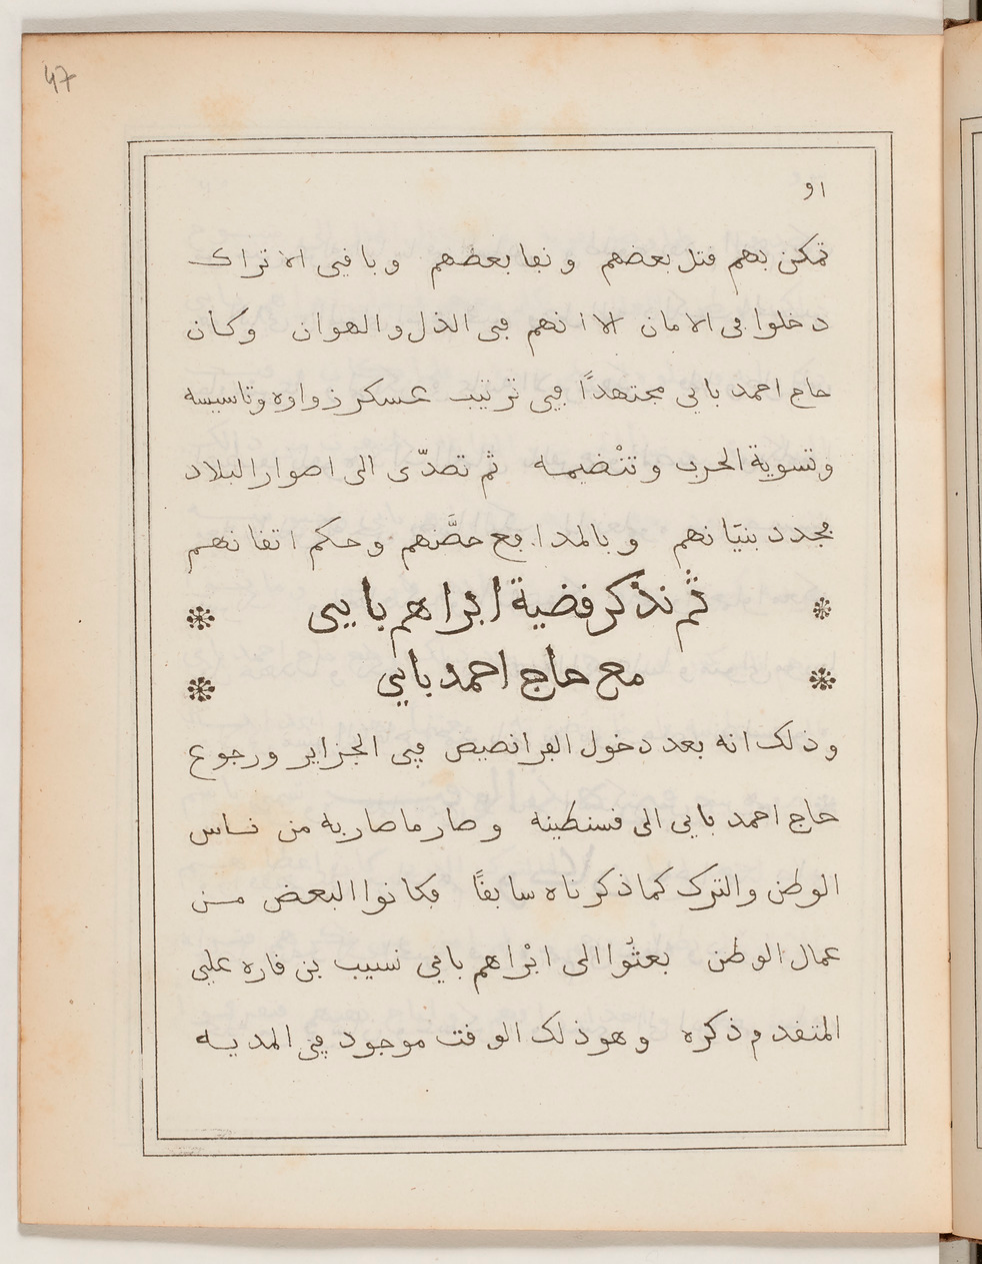 47
٩١
تمكن بهم قتل بعضهم ونفا بعضهم وباقي الاتراك
دخلوا في الامان الا انهم في الذل والهوان وكان
حاج احمد باي مجتهدًا في ترتيب عسكر زواوه وتاسيسه
وتسوية الحرب وتنْضيمه ثم تصدّى الى اصوار البلاد
مجدد بنيانهم وبالمدافع حصَّنهم وحكم اتقانهم
ثم نذكر قضية ابراهم بايي
مع حاج احمد بايي
وذلك انه بعد دخول الفرانصيص في الجزاير ورجوع
حاج احمد بايي الى قسنطينه وصار ما صار به من ناس
الوطن والترك كما ذكرناه سابقًا فكانوا البعض من
عمال الوطن بعثوا الى ابْراهم بايي نسيب بن قاره علي
المتقدم ذكره وهو ذلك الوقت موجود في المديه